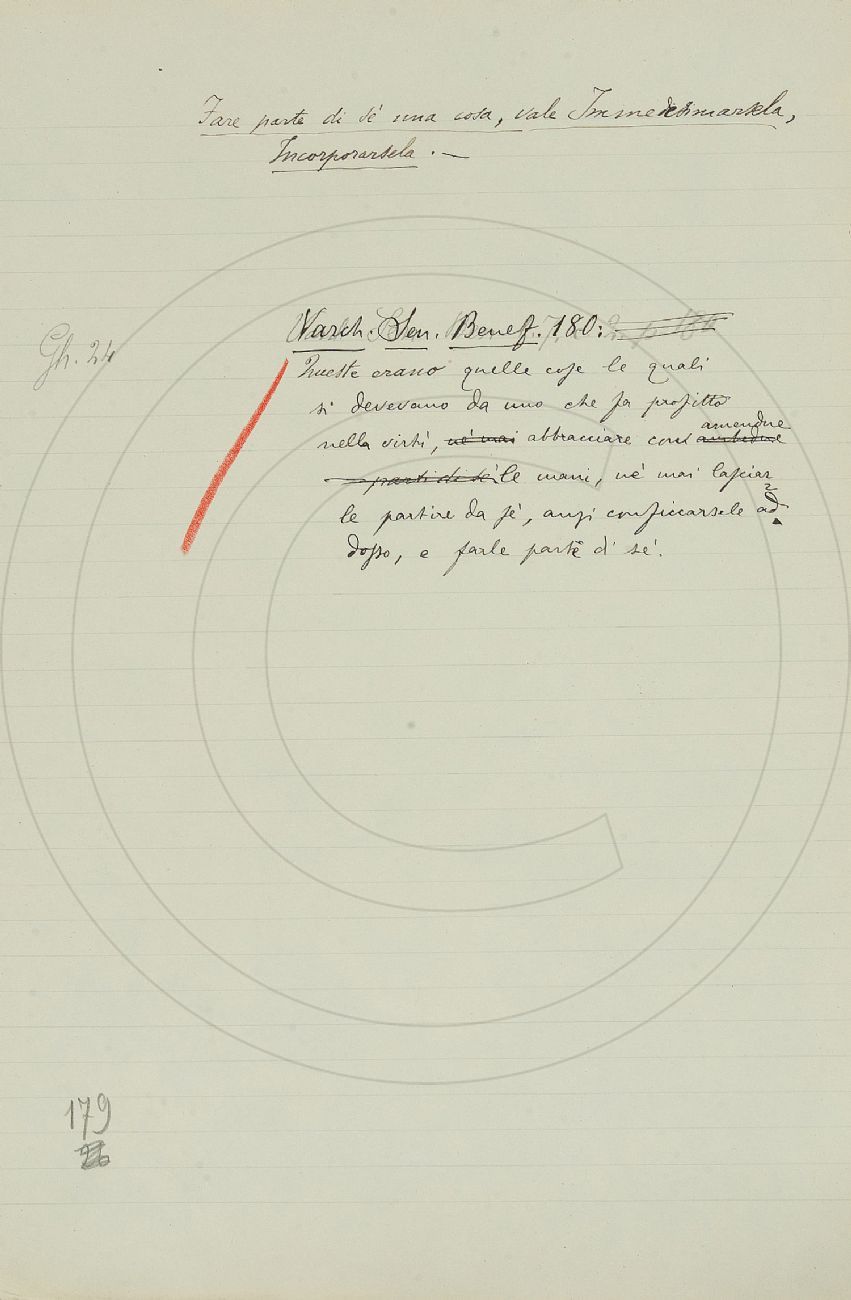 Fare parte di sé una cosa, vale Immedesimarsela,
Incorporarsela. —
Gh. 24
Varch. Sen. Benef. 180:
Queste erano quelle cose le quali
si devevano da uno che fa profitto
amendue
nella virtù, né mai abbracciare con ambedue
parti di sé le mani, né mai lasciar
le partire da sé, anzi conficcarsele ad
dosso, e farle parte di sé.
179